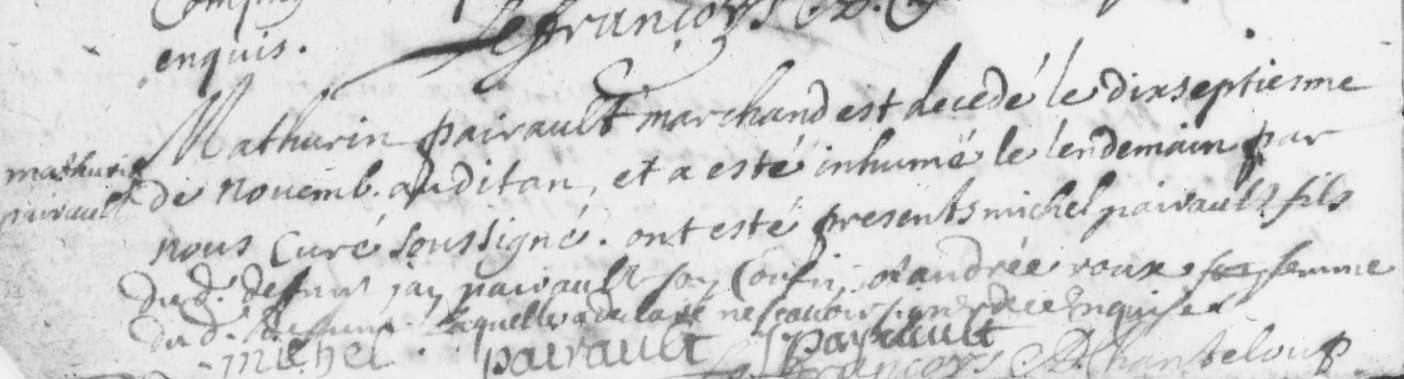 enquis. Lefrançoys
Mathurin pairault marchand est decedé le dixseptiesme
mathurin pairault
de novemb. auditan, et a esté inhumé le lendemain par
nous Curé soussigné. ont esté presents michel pairault fils
du d. deffunt jan pairault son Cousin, et andrée roux femme
du d. deffunt. laquelle a declaré ne scavoir signer de ce enquise
michel pairault J pairault
Lefrançoys Chanteloup